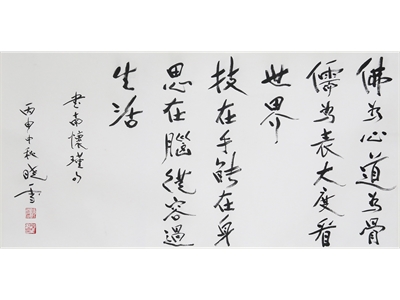 佛为心道为骨
儒为表大度看
世界
技在手能在身
思在腦從容過
生活
书南懷瑾句
丙申中秋晓雪